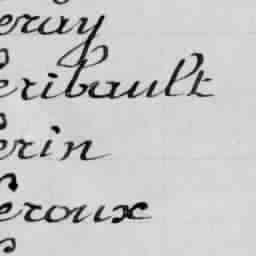 eray
eribault
erin
eroux